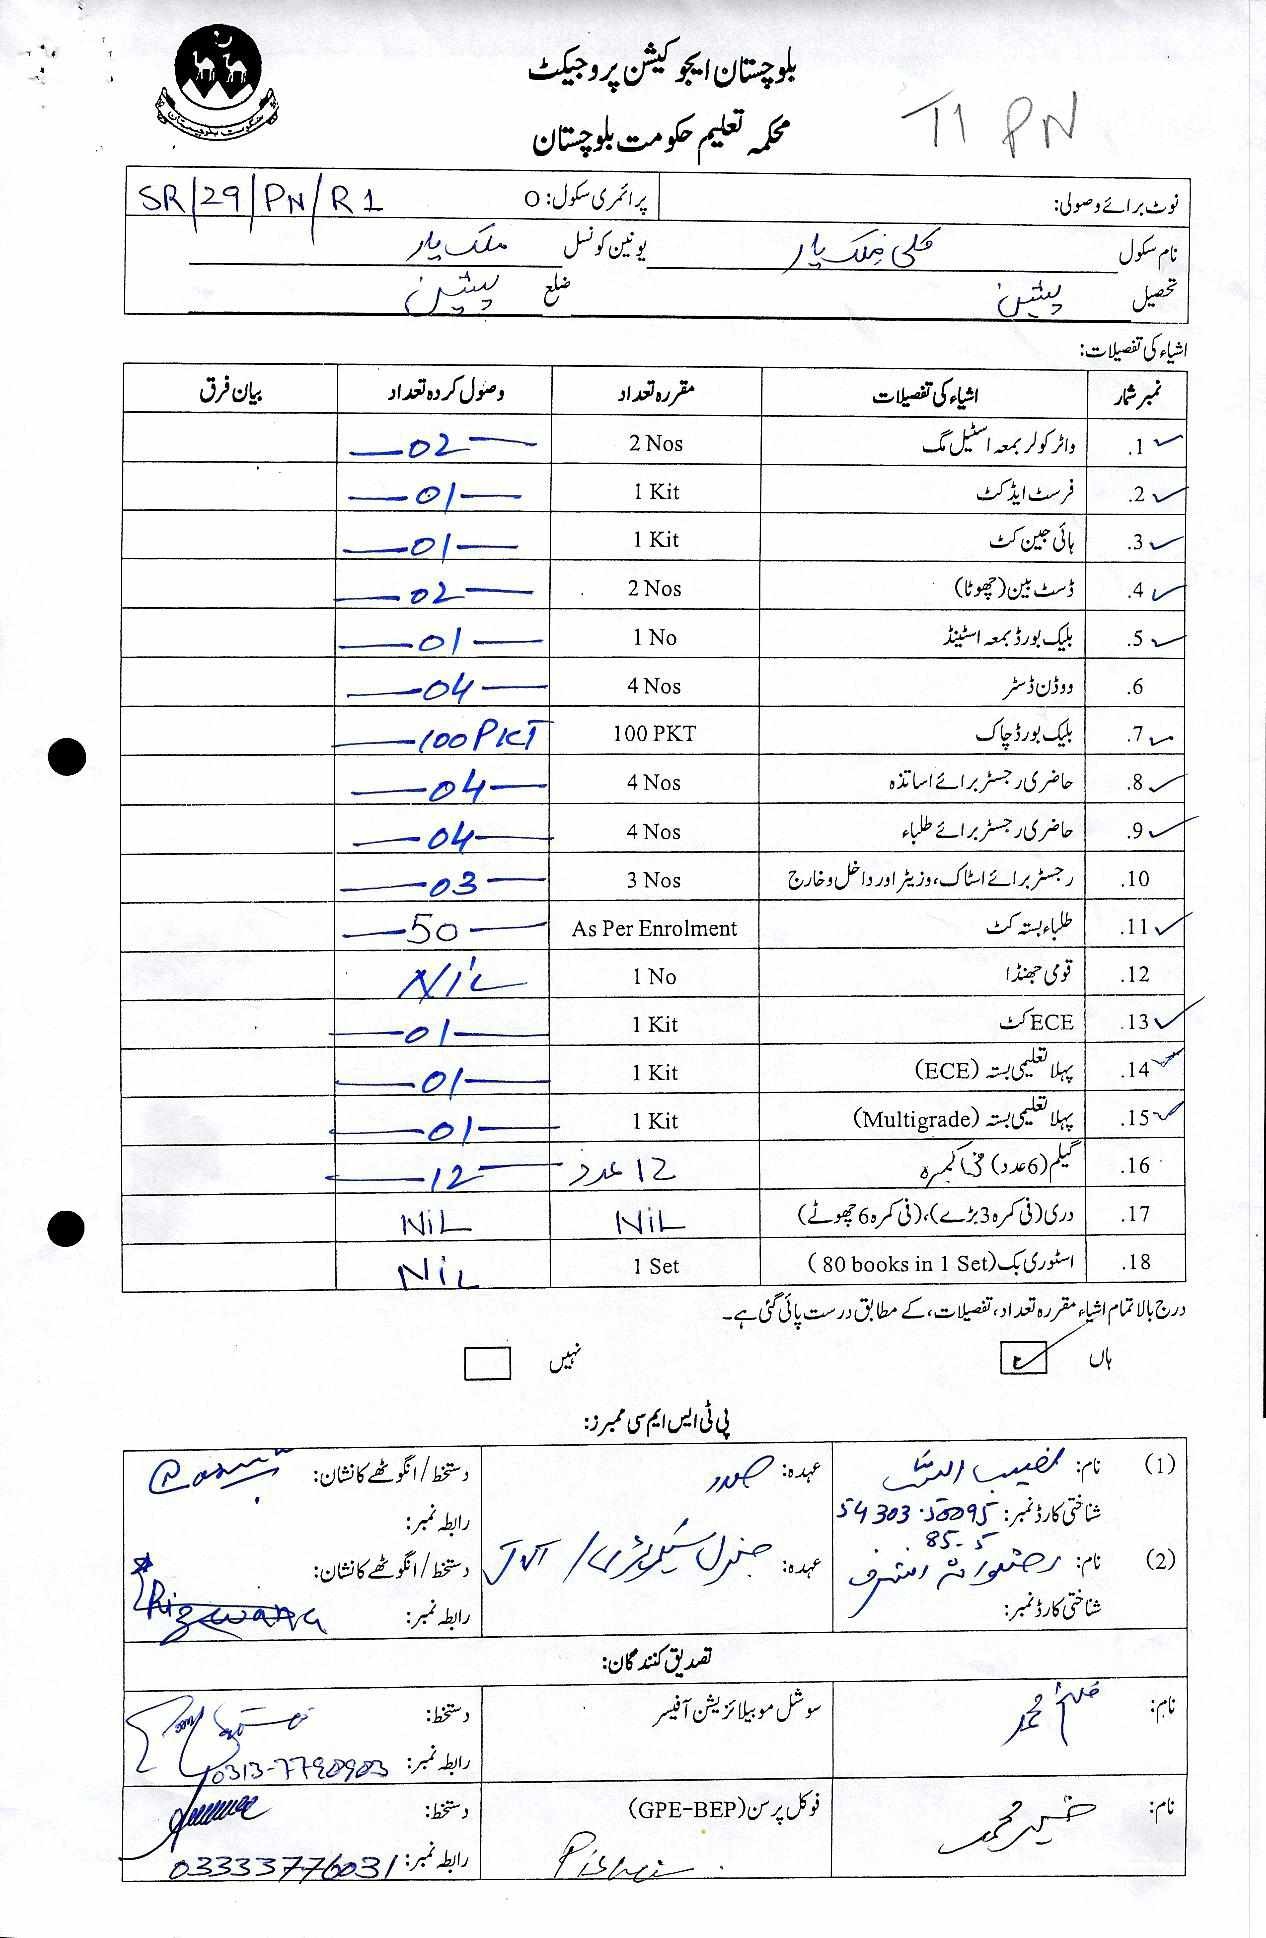 بلوچستان ایجوکیشن پروجیکٹ
T1 PN
محکمہ تعلیم حکومت بلوچستان
نوٹ برائے وصولی: پرائمری سکول: O SR/29/PN/R1
نام سکول کلی ملک یار یونین کونسل ملک یار
تحصیل پشین ضلع پشین
اشیاء کی تفصیلات:
نمبر شمار اشیاء کی تفصیلات مقررہ تعداد وصول کردہ تعداد بیان فرق
1. واٹر کولر بمعہ اسٹیل مگ 2 Nos 02
2. فرسٹ ایڈ کٹ 1 Kit 01
3. ہائی جین کٹ 1 Kit 01
4. ڈسٹ بین (چھوٹا) 2 Nos 02
5. بلیک بورڈ بمعہ اسٹینڈ 1 No 01
6. ووڈن ڈسٹر 4 Nos 04
7. بلیک بورڈ چاک 100 PKT 100 PKT
8. حاضری رجسٹر برائے اساتذہ 4 Nos 04
9. حاضری رجسٹر برائے طلباء 4 Nos 04
10. رجسٹر برائے اسٹاک، وزیٹر اور داخل و خارج 3 Nos 03
11. طلباء بستہ کٹ As Per Enrolment 50
12. قومی جھنڈا 1 No NiL
13. ECE کٹ 1 Kit 01
14. پہلا تعلیمی بستہ (ECE) 1 Kit 01
15. پہلا تعلیمی بستہ (Multigrade) 1 Kit 01
16. گیلم (6 عدد) فی کمرہ 12 عدد 12
17. دری (فی کمرہ 3 بڑے)، (فی کمرہ 6 چھوٹے) NiL NiL
18. اسٹوری بک (80 books in 1 Set) 1 Set NiL
درج بالا تمام اشیاء مقررہ تعداد، تفصیلات، کے مطابق درست پائی گئی ہے۔
ہاں نہیں
پی ٹی ایس ایم سی ممبرز:
(1) نام: نصیب اللہ عہدہ: صدر دستخط / انگوٹھے کا نشان:
شناختی کارڈ نمبر: رابطہ نمبر:
(2) نام: رضوانہ اشرف عہدہ: جنرل سیکریٹری / JVT دستخط / انگوٹھے کا نشان: Rizwana
شناختی کارڈ نمبر: رابطہ نمبر:
تصدیق کنندگان:
نام: سوشل موبیلائزیشن آفیسر دستخط:
رابطہ نمبر: 0313-7790903
نام: فوکل پرسن (GPE-BEP) دستخط:
Pishin رابطہ نمبر: 03333776031